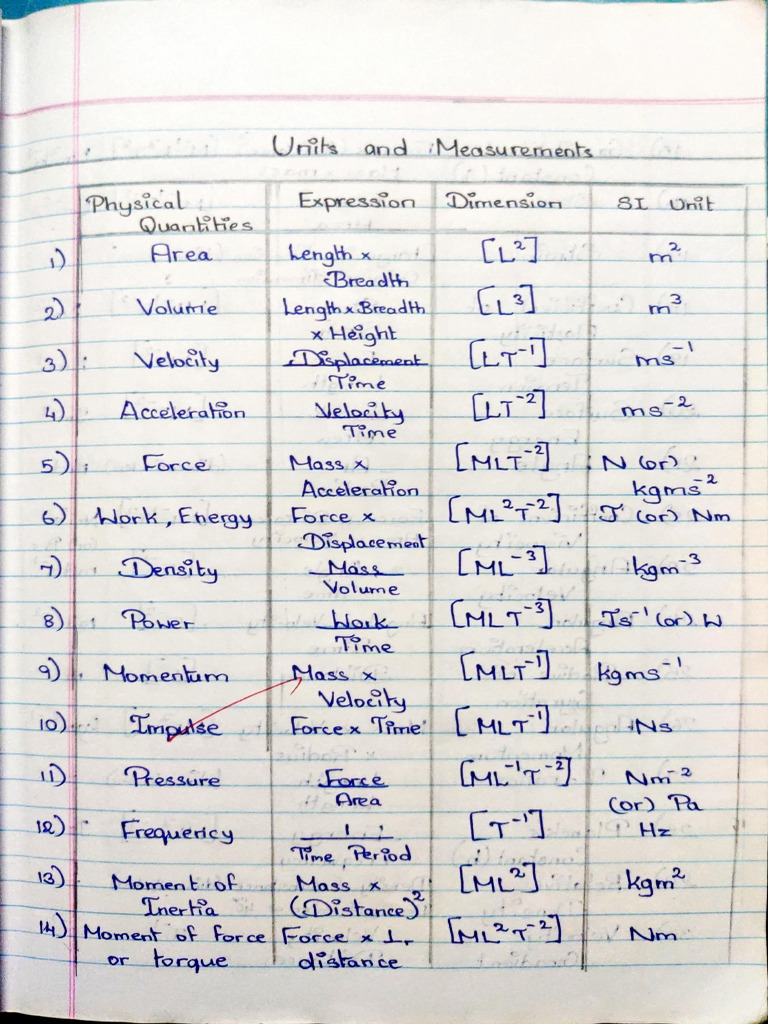 Units and Measurements
Physical Quantities Expression Dimension SI Unit
1) Area Length x Breadth [L²] m²
2) Volume Length x Breadth x Height [L³] m³
3) Velocity Displacement / Time [LT⁻¹] ms⁻¹
4) Acceleration Velocity / Time [LT⁻²] ms⁻²
5) Force Mass x Acceleration [MLT⁻²] N (or) kgms⁻²
6) Work, Energy Force x Displacement [ML²T⁻²] J (or) Nm
7) Density Mass / Volume [ML⁻³] kgm⁻³
8) Power Work / Time [MLT⁻³] Js⁻¹ (or) W
9) Momentum Mass x Velocity [MLT⁻¹] kgms⁻¹
10) Impulse Force x Time [MLT⁻¹] Ns
11) Pressure Force / Area [ML⁻¹T⁻²] Nm⁻² (or) Pa
12) Frequency 1 / Time Period [T⁻¹] Hz
13) Moment of Inertia Mass x (Distance)² [ML²] kgm²
14) Moment of force or torque Force x ⊥r distance [ML²T⁻²] Nm